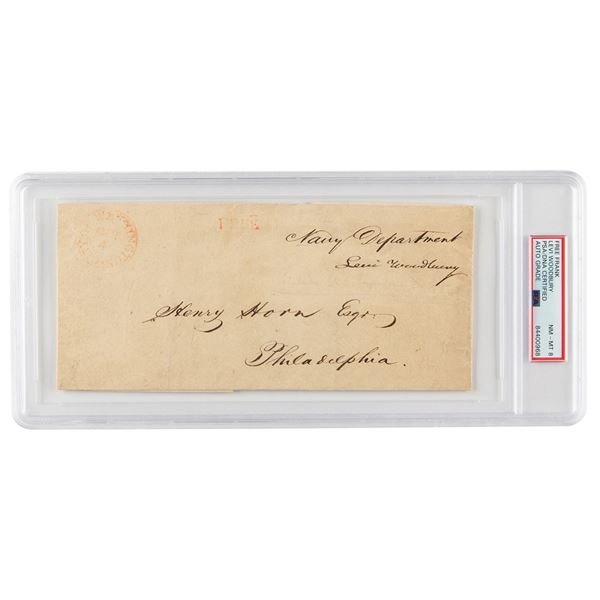 FREE
Navy Department
Levi Woodbury
Henry Horn Esqr.
Philadelphia.
FREE FRANK
LEVI WOODBURY
PSA/DNA CERTIFIED
AUTO GRADE
NM - MT 8
84400968